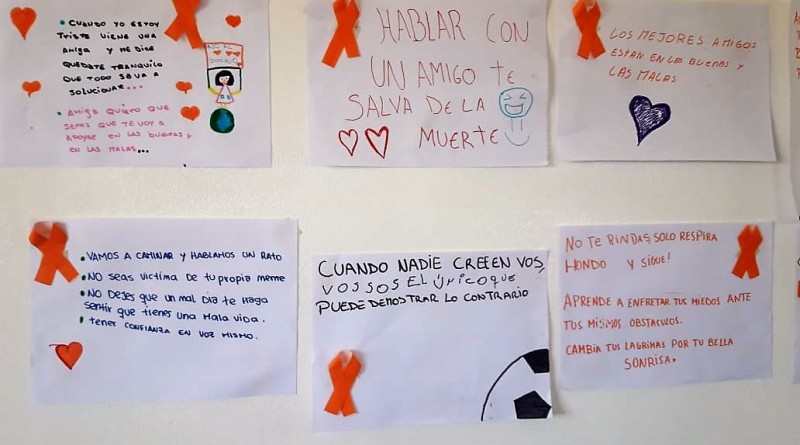 • CUANDO YO ESTOY
TRISTE VIENE UNA
AMIGA Y ME DICE
QUEDATE TRANQUILO
QUE TODO SE VA A
SOLUCIONAR...
• AMIGA QUIERO QUE
SEPAS QUE TE VOY A
APOYAR EN LAS BUENAS Y
EN LAS MALAS...
NO AL
HABLAR CON
UN AMIGO TE
SALVA DE LA
MUERTE
LOS MEJORES AMIGOS
ESTAN EN LAS BUENAS Y
LAS MALAS
• VAMOS A CAMINAR Y HABLAMOS UN RATO
• NO SEAS VICTIMA DE TU PROPIA MENTE
• NO DEJES QUE UN MAL DIA TE HAGA
SENTIR QUE TIENES UNA MALA VIDA.
• TENER CONFIANZA EN VOZ MISMO.
CUANDO NADIE CREE EN VOS,
VOS SOS EL ÚNICO QUE
PUEDE DEMOSTRAR LO CONTRARIO
NO TE RINDAS, SOLO RESPIRA
HONDO Y SIGUE!
APRENDE A ENFRETAR TUS MIEDOS ANTE
TUS MISMOS OBSTACULOS.
CAMBIA TUS LAGRIMAS POR TU BELLA
SONRISA.